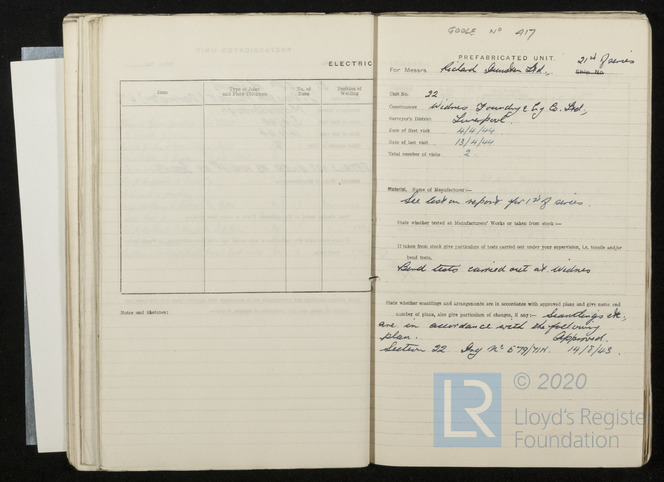 ELECTRIC
Item
Type of Joint and Plate Thickness
No. of
Position of Welding
Notes and Sketches:
GOOLE No 417
PREFABRICATED UNIT.
21st of series
For Messrs. Richard Dunston Ltd.,
Ship No
Unit No. 22
Constructor Widnes Foundry & Eng Co. Ltd,
Surveyor's District Liverpool.
Date of first visit 4/4/44
Date of last visit 13/4/44
Total number of visits 2
Material. Name of Manufacturer:—
See test on report for 1st of series.
State whether tested at Manufacturers' Works or taken from stock:—
If taken from stock give particulars of tests carried out under your supervision, i.e. tensile and/or
bend tests.
Bend tests carried out at Widnes
State whether scantlings and arrangements are in accordance with approved plans and give name and
number of plans, also give particulars of changes, if any:— Scantlings etc,
are in accordance with the following
plan. Approved.
Section 22 Dwg No 14/8/43.
© 2020
LR
Lloyd's Register
Foundation